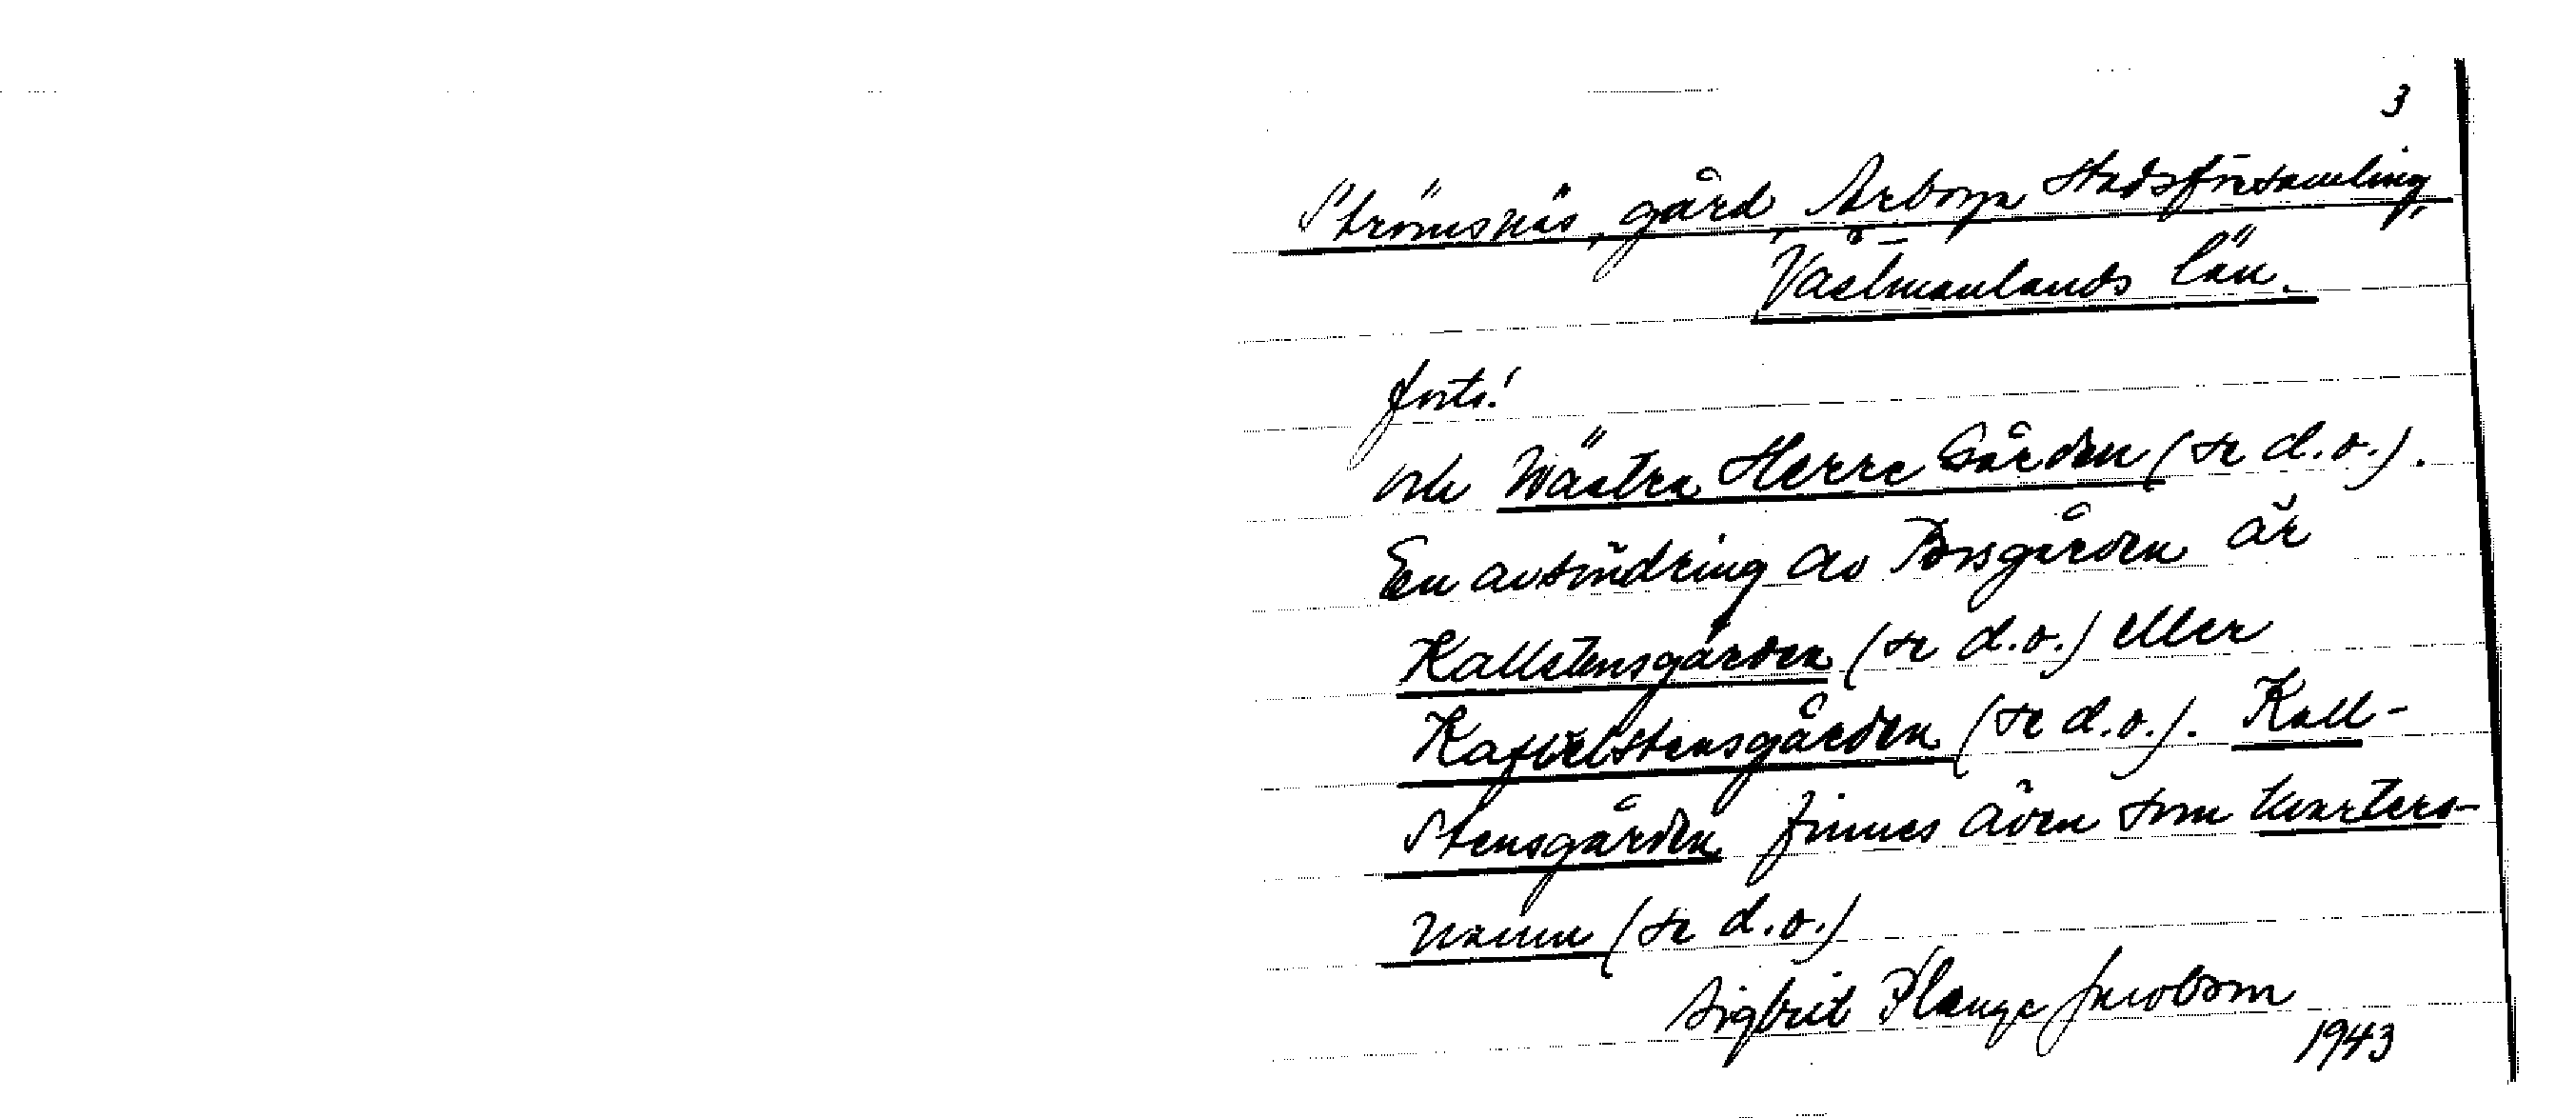 3
Strömsnäs, gård, Arboga Stadsförsamling,
Västmanlands län.
forts!
och Wästra Herre Gården (se d.o.).
En avsöndring av Borsgården är
Kallstensgården (se d.o.) eller
Kafvelstensgården (se d.o.). Kall-
Stensgården finnes även som kvarters-
namn (se d.o.)
Sigbrit Plænge Jacobson
1943